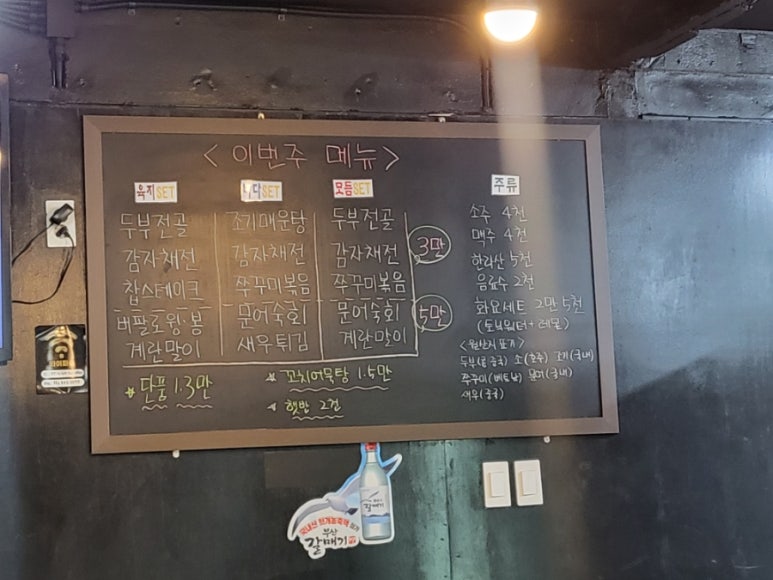 <이번주 메뉴>
육지SET 바다SET 모듬SET 주류
두부전골 조기매운탕 두부전골
감자채전 감자채전 감자채전 3만
찹스테이크 쭈꾸미볶음 쭈꾸미볶음
버팔로윙·봉 문어숙회 문어숙회 5만
계란말이 새우튀김 계란말이
단품 1.3만
꼬치어묵탕 1.5만
햇반 2천
소주 4천
맥주 4천
한라산 5천
음료수 2천
화요세트 2만 5천
(토닉워터 + 레몬)
<원산지 표기>
두부(콩:중국) 소(호주) 조기(국내)
쭈꾸미(베트남) 문어(국내)
새우(중국)
부산
갈매기